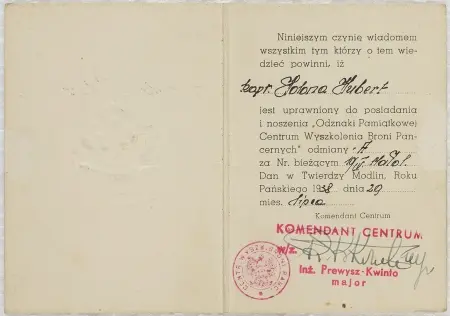 Niniejszym czynię wiadomem
wszystkim tym którzy o tem wie-
dzieć powinni, iż
kapr. Hubert
jest uprawniony do posiadania
i noszenia „Odznaki Pamiątkowej
Centrum Wyszkolenia Broni Pan-
cernych" odmiany A
za Nr. bieżącym
Dan w Twierdzy Modlin, Roku
Pańskiego 1938 dnia 29
mies. Lipca
Komendant Centrum
KOMENDANT CENTRUM
w/z.
Inż. Prewysz-Kwinto
major